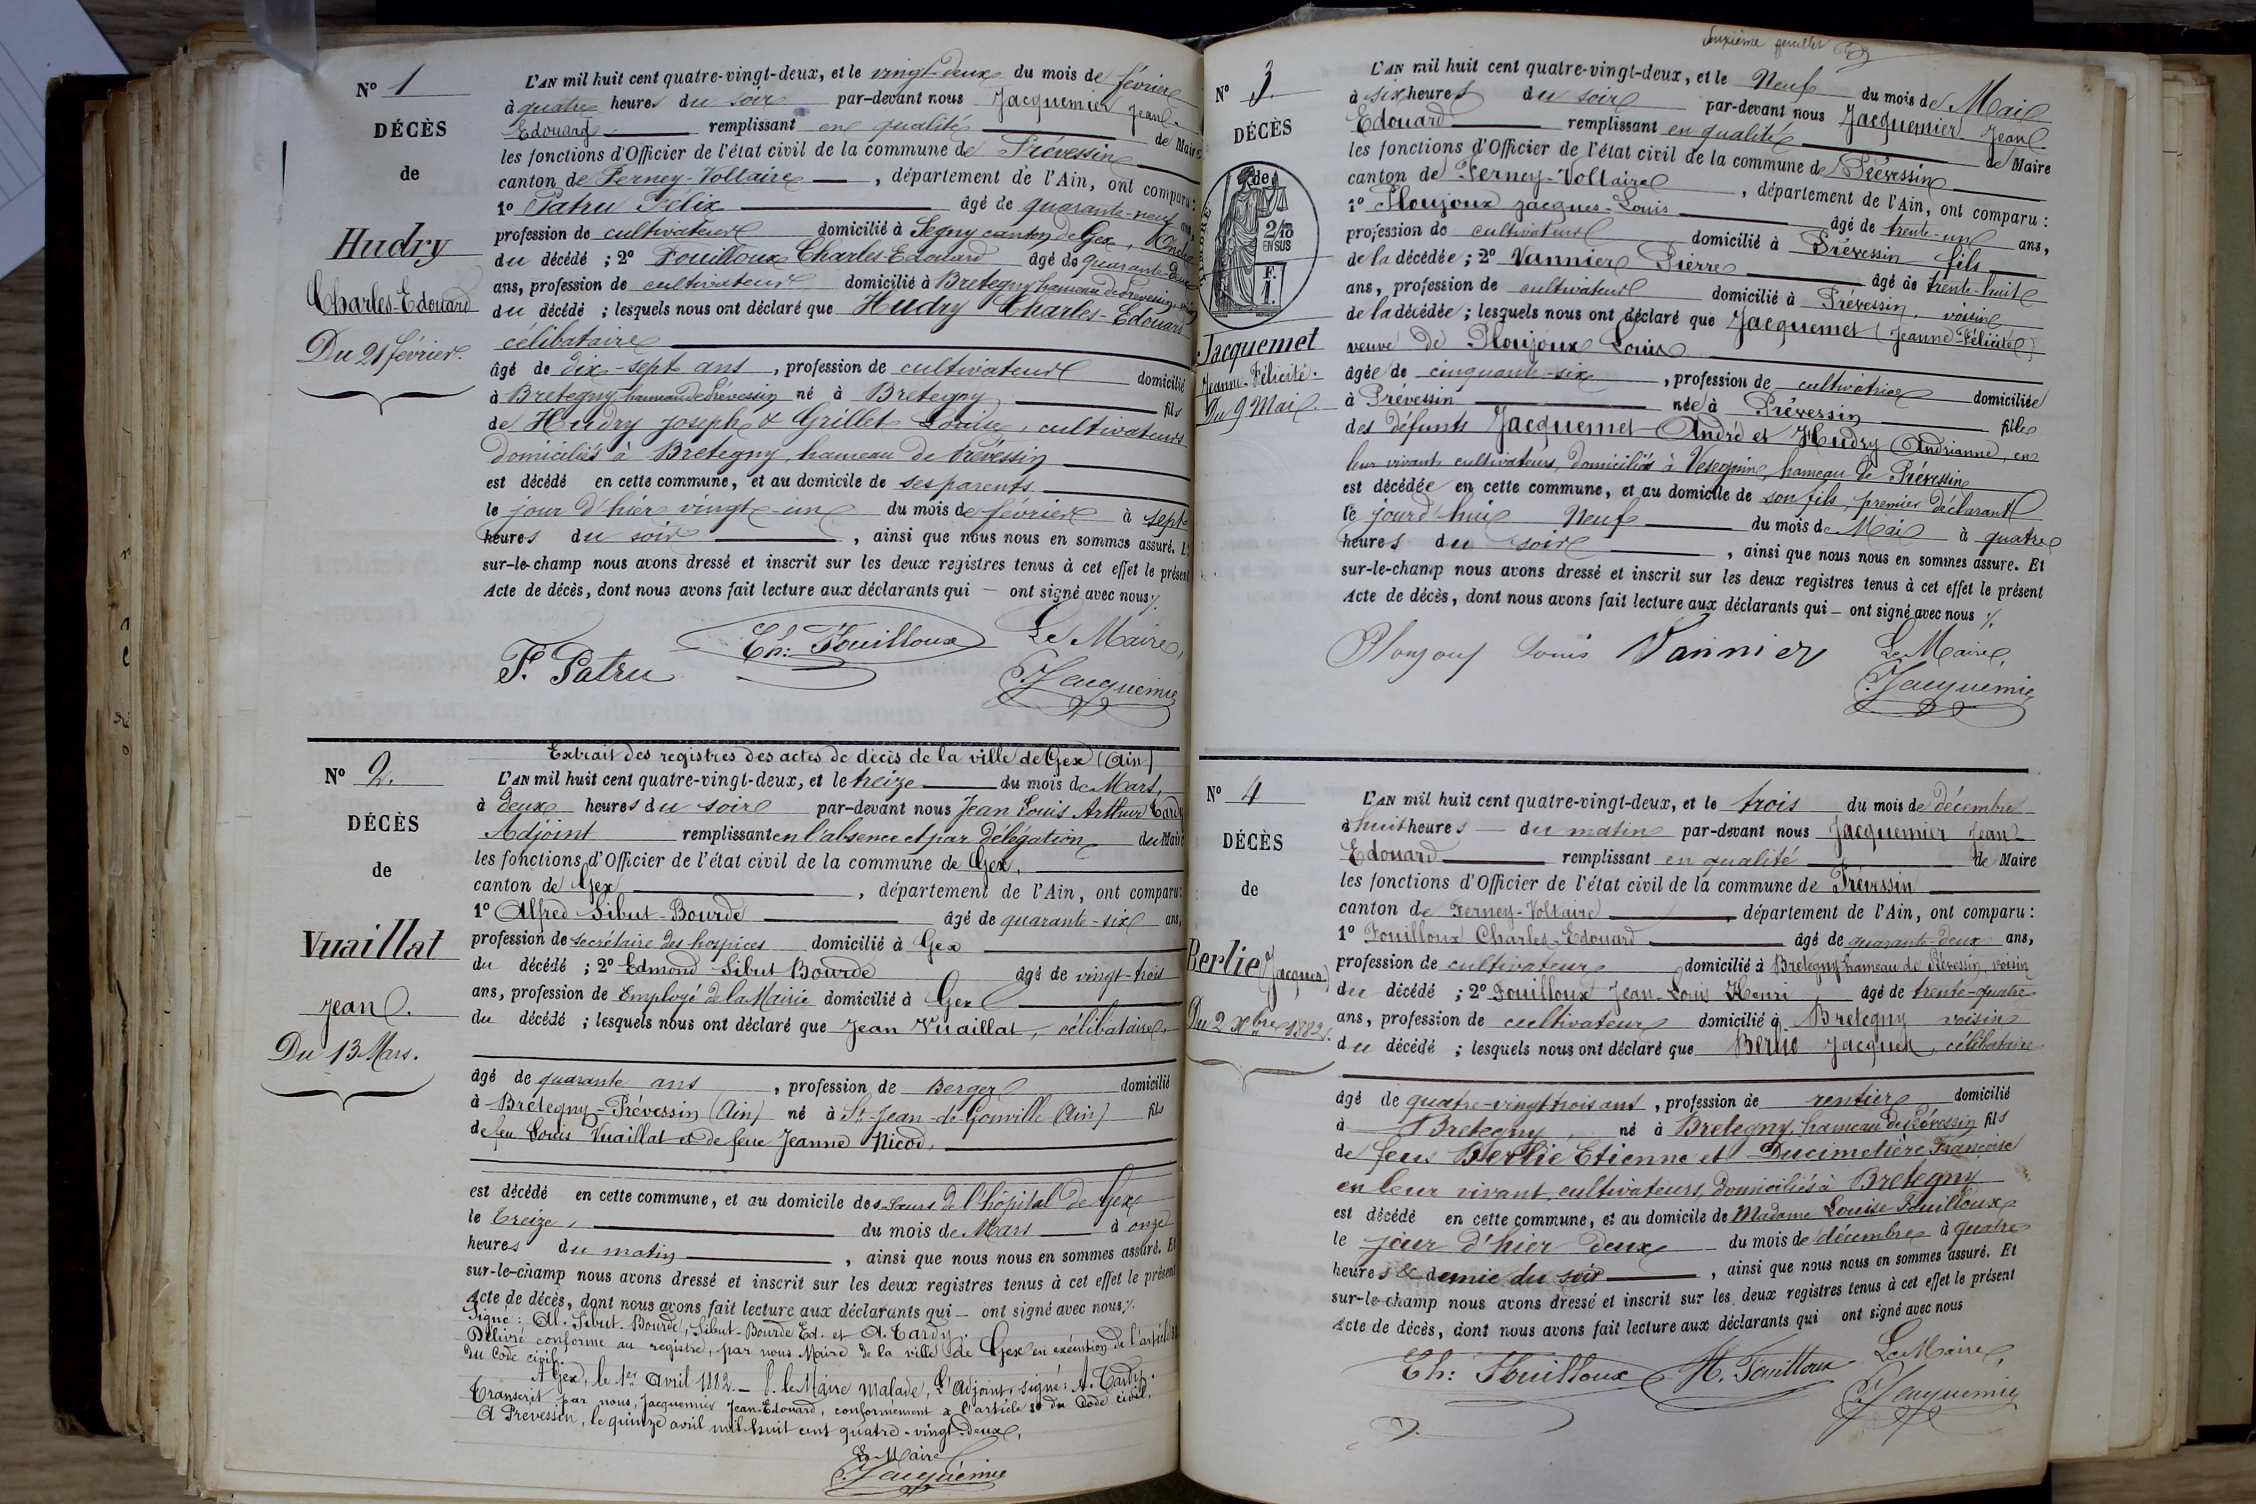 N° 1
DÉCÈS
de
Hudry
Charles-Edouard
Du 21 février.
L'AN mil huit cent quatre-vingt-deux, et le vingt-deux du mois de février
à quatre heures du soir par-devant nous Jacquemier Jean
Edouard remplissant en qualité de Maire
les fonctions d'Officier de l'état civil de la commune de Prévessin
canton de Ferney-Voltaire, département de l'Ain, ont comparu :
1° Patru Félix âgé de quarante-neuf ans,
profession de cultivateur domicilié à Segny canton de Gex, Oncle
du décédé ; 2° Fouilloux Charles-Edouard âgé de quarante-deux
ans, profession de cultivateur domicilié à Bretegny hameau de Prévessin, voisin
du décédé ; lesquels nous ont déclaré que Hudry Charles-Edouard
célibataire
âgé de dix-sept ans, profession de cultivateur domicilié
à Bretegny hameau de Prévessin né à Bretegny fils
de Hudry Joseph & Grillet Louise, cultivateurs
domiciliés à Bretegny, hameau de Prévessin
est décédé en cette commune, et au domicile de ses parents
le jour d'hier vingt-un du mois de février à sept
heures du soir, ainsi que nous nous en sommes assuré. Et
sur-le-champ nous avons dressé et inscrit sur les deux registres tenus à cet effet le présent
Acte de décès, dont nous avons fait lecture aux déclarants qui — ont signé avec nous ./.
F. Patru Ch: Fouilloux Le Maire,
Jacquemier
N° 2.
DÉCÈS
de
Vuaillat
Jean.
Du 13 Mars.
Extrait des registres des actes de décès de la ville de Gex (Ain)
L'AN mil huit cent quatre-vingt-deux, et le treize du mois de Mars,
à deux heures du soir par-devant nous Jean Louis Arthur Tardy
Adjoint remplissant en l'absence et par délégation du Maire
les fonctions d'Officier de l'état civil de la commune de Gex,
canton de Gex, département de l'Ain, ont comparu :
1° Alfred Sibut-Bourde âgé de quarante-six ans,
profession de secrétaire des hospices domicilié à Gex
du décédé ; 2° Edmond Sibut Bourde âgé de vingt-trois
ans, profession de Employé de la Mairie domicilié à Gex
du décédé ; lesquels nous ont déclaré que Jean Vuaillat, célibataire,
âgé de quarante ans, profession de Berger domicilié
à Brétegny-Prévessin (Ain) né à St-Jean-de-Gonville (Ain) fils
de feu Louis Vuaillat et de feue Jeanne Nicod,
est décédé en cette commune, et au domicile des sœurs de l'hôpital de Gex
le treize, du mois de Mars à onze
heures du matin, ainsi que nous nous en sommes assuré. Et
sur-le-champ nous avons dressé et inscrit sur les deux registres tenus à cet effet le présent
Acte de décès, dont nous avons fait lecture aux déclarants qui — ont signé avec nous ./.
Signé : Al. Sibut-Bourde, Sibut-Bourde Ed. et A. Tardy.
Délivré conforme au registre, par nous Maire de la ville de Gex en exécution de l'article 80
du Code civil.
A Gex, le 1er avril 1882. — P. le Maire malade, L'Adjoint, signé : A. Tardy.
Transcrit par nous, Jacquemier Jean-Edouard, conformément à l'article 80 du Code civil,
A Prévessin, le quinze avril mil huit cent quatre-vingt-deux,
Le Maire
Jacquemier
Deuxième feuillet
N° 3.
DÉCÈS
de
2/10
EN SUS
F.
1.
Jacquemet
Jeanne-Félicité.
Du 9 Mai.
L'AN mil huit cent quatre-vingt-deux, et le Neuf du mois de Mai
à six heures du soir par-devant nous Jacquemier Jean
Edouard remplissant en qualité de Maire
les fonctions d'Officier de l'état civil de la commune de Prévessin
canton de Ferney-Voltaire, département de l'Ain, ont comparu :
1° Ploujoux Jacques-Louis âgé de trente-un ans,
profession de cultivateur domicilié à Prévessin fils
de la décédée ; 2° Vannier Pierre âgé de trente-huit
ans, profession de cultivateur domicilié à Prévessin, voisin
de la décédée ; lesquels nous ont déclaré que Jacquemet (Jeanne-Félicité)
veuve de Ploujoux Louis
âgée de cinquante-six, profession de cultivatrice domiciliée
à Prévessin née à Prévessin fille
des défunts Jacquemet André et Hudry Andrianne, en
leur vivant cultivateurs, domiciliés à Vesegnin, hameau de Prévessin
est décédée en cette commune, et au domicile de son fils, premier déclarant
le jourd'hui Neuf du mois de Mai à quatre
heures du soir, ainsi que nous nous en sommes assuré. Et
sur-le-champ nous avons dressé et inscrit sur les deux registres tenus à cet effet le présent
Acte de décès, dont nous avons fait lecture aux déclarants qui — ont signé avec nous ./.
Ploujoux Louis Vannier Le Maire,
Jacquemier
N° 4
DÉCÈS
de
Berlie (Jacques)
Du 2 Xbre 1882.
L'AN mil huit cent quatre-vingt-deux, et le trois du mois de décembre
à huit heures — du matin par-devant nous Jacquemier Jean
Edouard remplissant en qualité de Maire
les fonctions d'Officier de l'état civil de la commune de Prévessin
canton de Ferney-Voltaire, département de l'Ain, ont comparu :
1° Fouilloux Charles-Edouard âgé de quarante-deux ans,
profession de cultivateur domicilié à Bretegny hameau de Prévessin, voisin
du décédé ; 2° Fouilloux Jean-Louis Henri âgé de trente-quatre
ans, profession de cultivateur domicilié à Bretegny voisin
du décédé ; lesquels nous ont déclaré que Berlie Jacques, célibataire
âgé de quatre-vingt trois ans, profession de rentier domicilié
à Bretegny, né à Bretegny, hameau de Prévessin fils
de feus Berlie Etienne et Ducimetière Françoise
en leur vivant cultivateurs, domiciliés à Bretegny
est décédé en cette commune, et au domicile de Madame Louise Fouilloux
le jour d'hier deux du mois de décembre à quatre
heures & demie du soir, ainsi que nous nous en sommes assuré. Et
sur-le-champ nous avons dressé et inscrit sur les deux registres tenus à cet effet le présent
Acte de décès, dont nous avons fait lecture aux déclarants qui ont signé avec nous
Ch: Fouilloux H. Fouilloux Le Maire,
Jacquemier